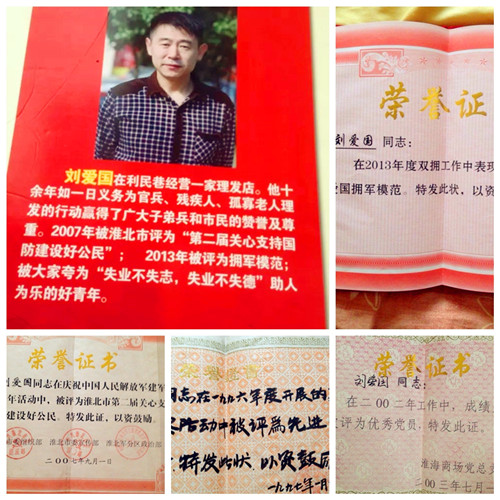 刘爱国在利民巷经营一家理发店。他十
余年如一日义务为官兵、残疾人、孤寡老人理
发的行动赢得了广大子弟兵和市民的赞誉及
尊重。2007年被淮北市评为“第二届关心支持国
防建设好公民”； 2013年被评为拥军模范；
被大家夸为“失业不失志，失业不失德”助人
为乐的好青年。
荣誉证
刘爱国 同志：
在2013年度双拥工作中表现
爱国拥军模范。特发此状，以资
荣誉证书
刘爱国同志在庆祝中国人民解放军建军
年活动中，被评为淮北市第二届关心支
建设好公民。特发此证，以资鼓励。
淮北市委宣传部 淮北军分区政治部
二00七年九月一日
荣誉证书
同志在一九九六年度开展的
活动中被评为先进
特发此状，以资鼓励
一九九七年一月
荣誉证书
刘爱国 同志：
在二00二年工作中，成绩
被评为优秀党员，特发此证。
淮海商场党总支
二00三年七月一日